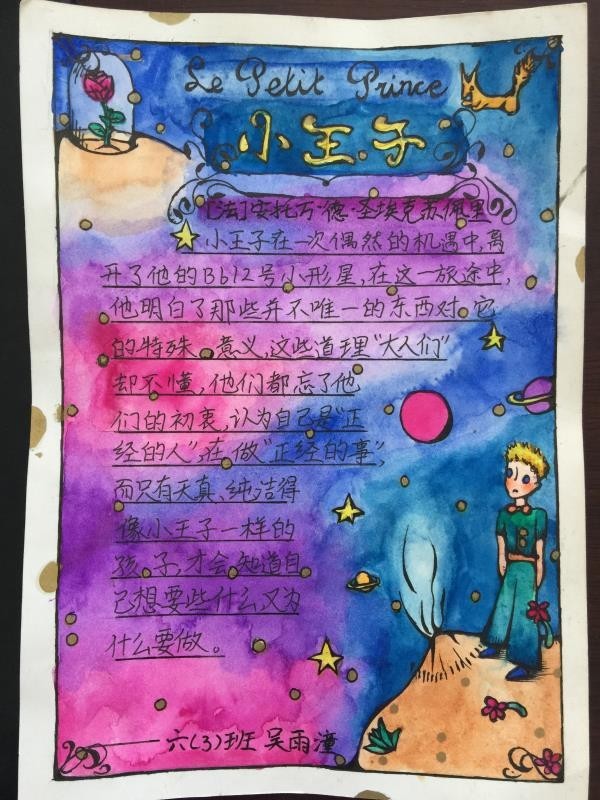 Le Petit Prince
小王子
[法]安托万·德·圣埃克苏佩里
小王子在一次偶然的机遇中,离
开了他的B612号小形星,在这一旅途中,
他明白了那些并不唯一的东西对它
的特殊意义,这些道理"大人们"
却不懂,他们都忘了他
们的初衷,认为自己是"正
经的人",在做"正经的事",
而只有天真、纯洁得
像小王子一样的
孩子,才会知道自
己想要些什么,又为
什么要做。
——六(3)班 吴雨潼